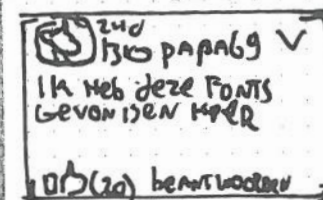 2 ud
papa69
Ik heb deze fonts
gevonden
(20) beantwoorden